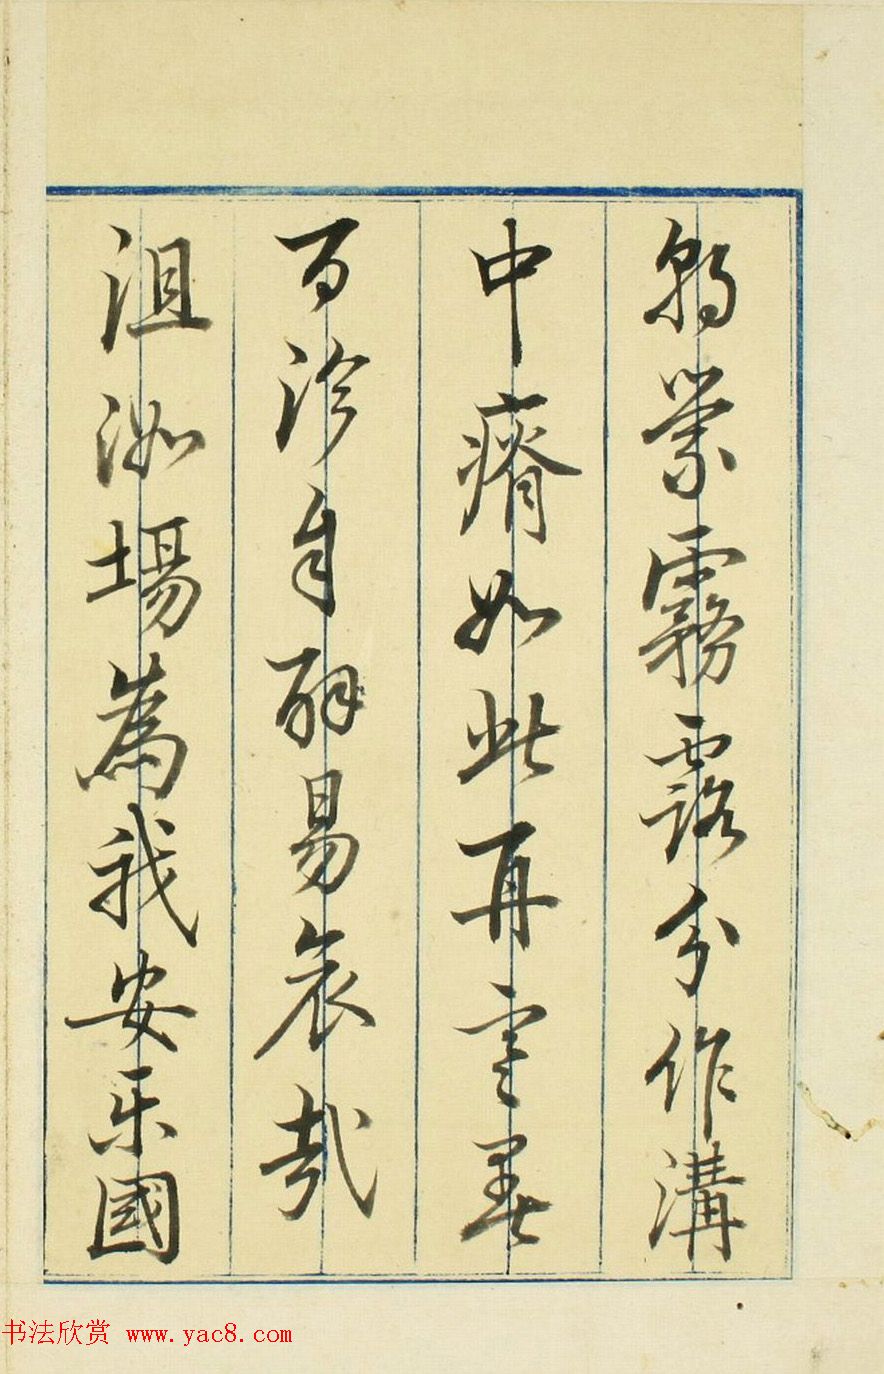 朝蒙霧露分作溝
中瘠如此再寒暑
百沴自辟易哀哉
沮洳場為我安乐國
书法欣赏 www.yac8.com